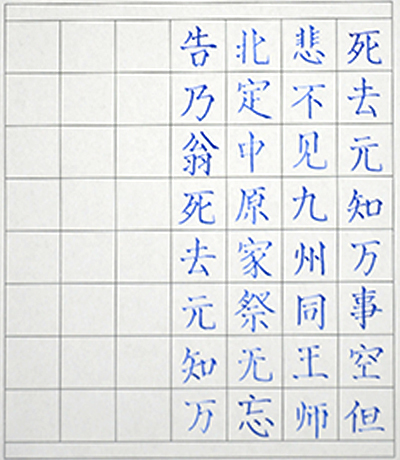 死去元知万事空但
悲不见九州同王师
北定中原家祭无忘
告乃翁死去元知万